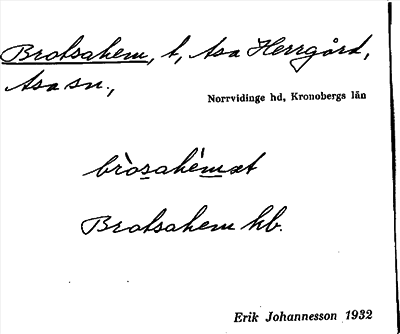 Brotsahem, t, Asa Herrgård,
Asa sn.,
Norrvidinge hd, Kronobergs län
bròsahémæt
Brotsahem hb.
Erik Johannesson 1932